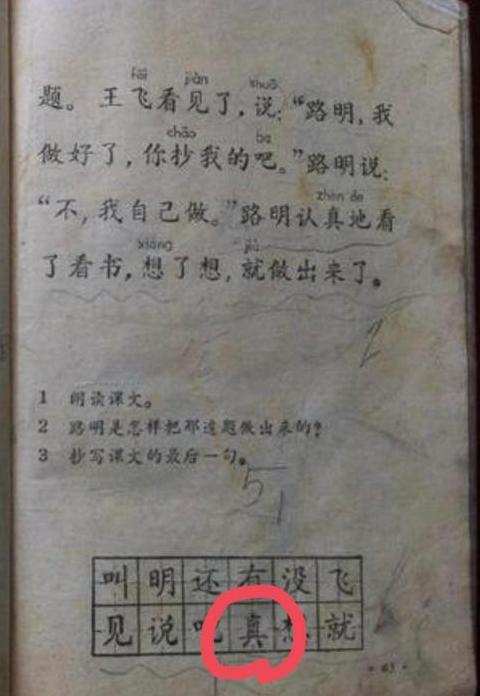 fēi jiàn shuō
题。王飞看见了,说:“路明,我
chāo ba
做好了,你抄我的吧。”路明说:
zhēn de
“不,我自己做。”路明认真地看
xiǎng jiù
了看书,想了想,就做出来了。
2
1 朗读课文。
2 路明是怎样把那道题做出来的?
3 抄写课文的最后一句。
51
叫明还有没飞
见说吧真想就
·63·